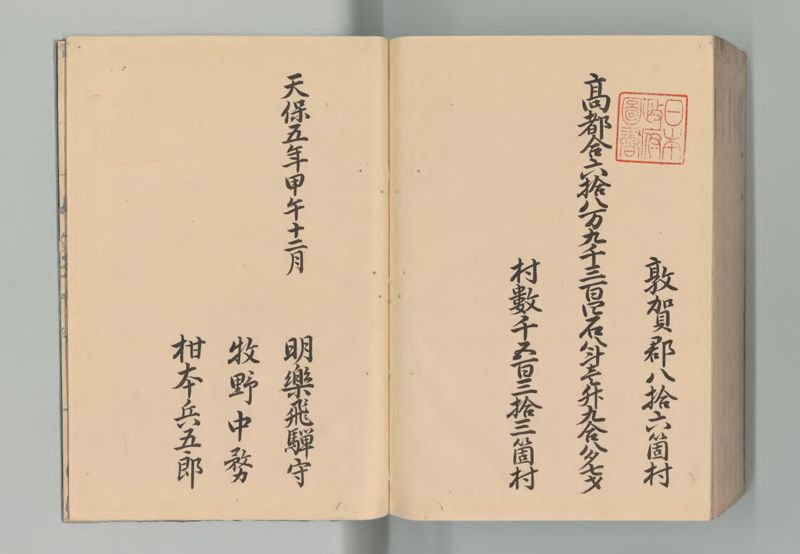 日本
政府
圖書
敦賀郡八拾六箇村
高都合六拾八万九千三百四石八斗壱升九合八夕七才
村數千五百三拾三箇村
天保五年甲午十二月
明樂飛驒守
牧野中務
柑本兵五郎